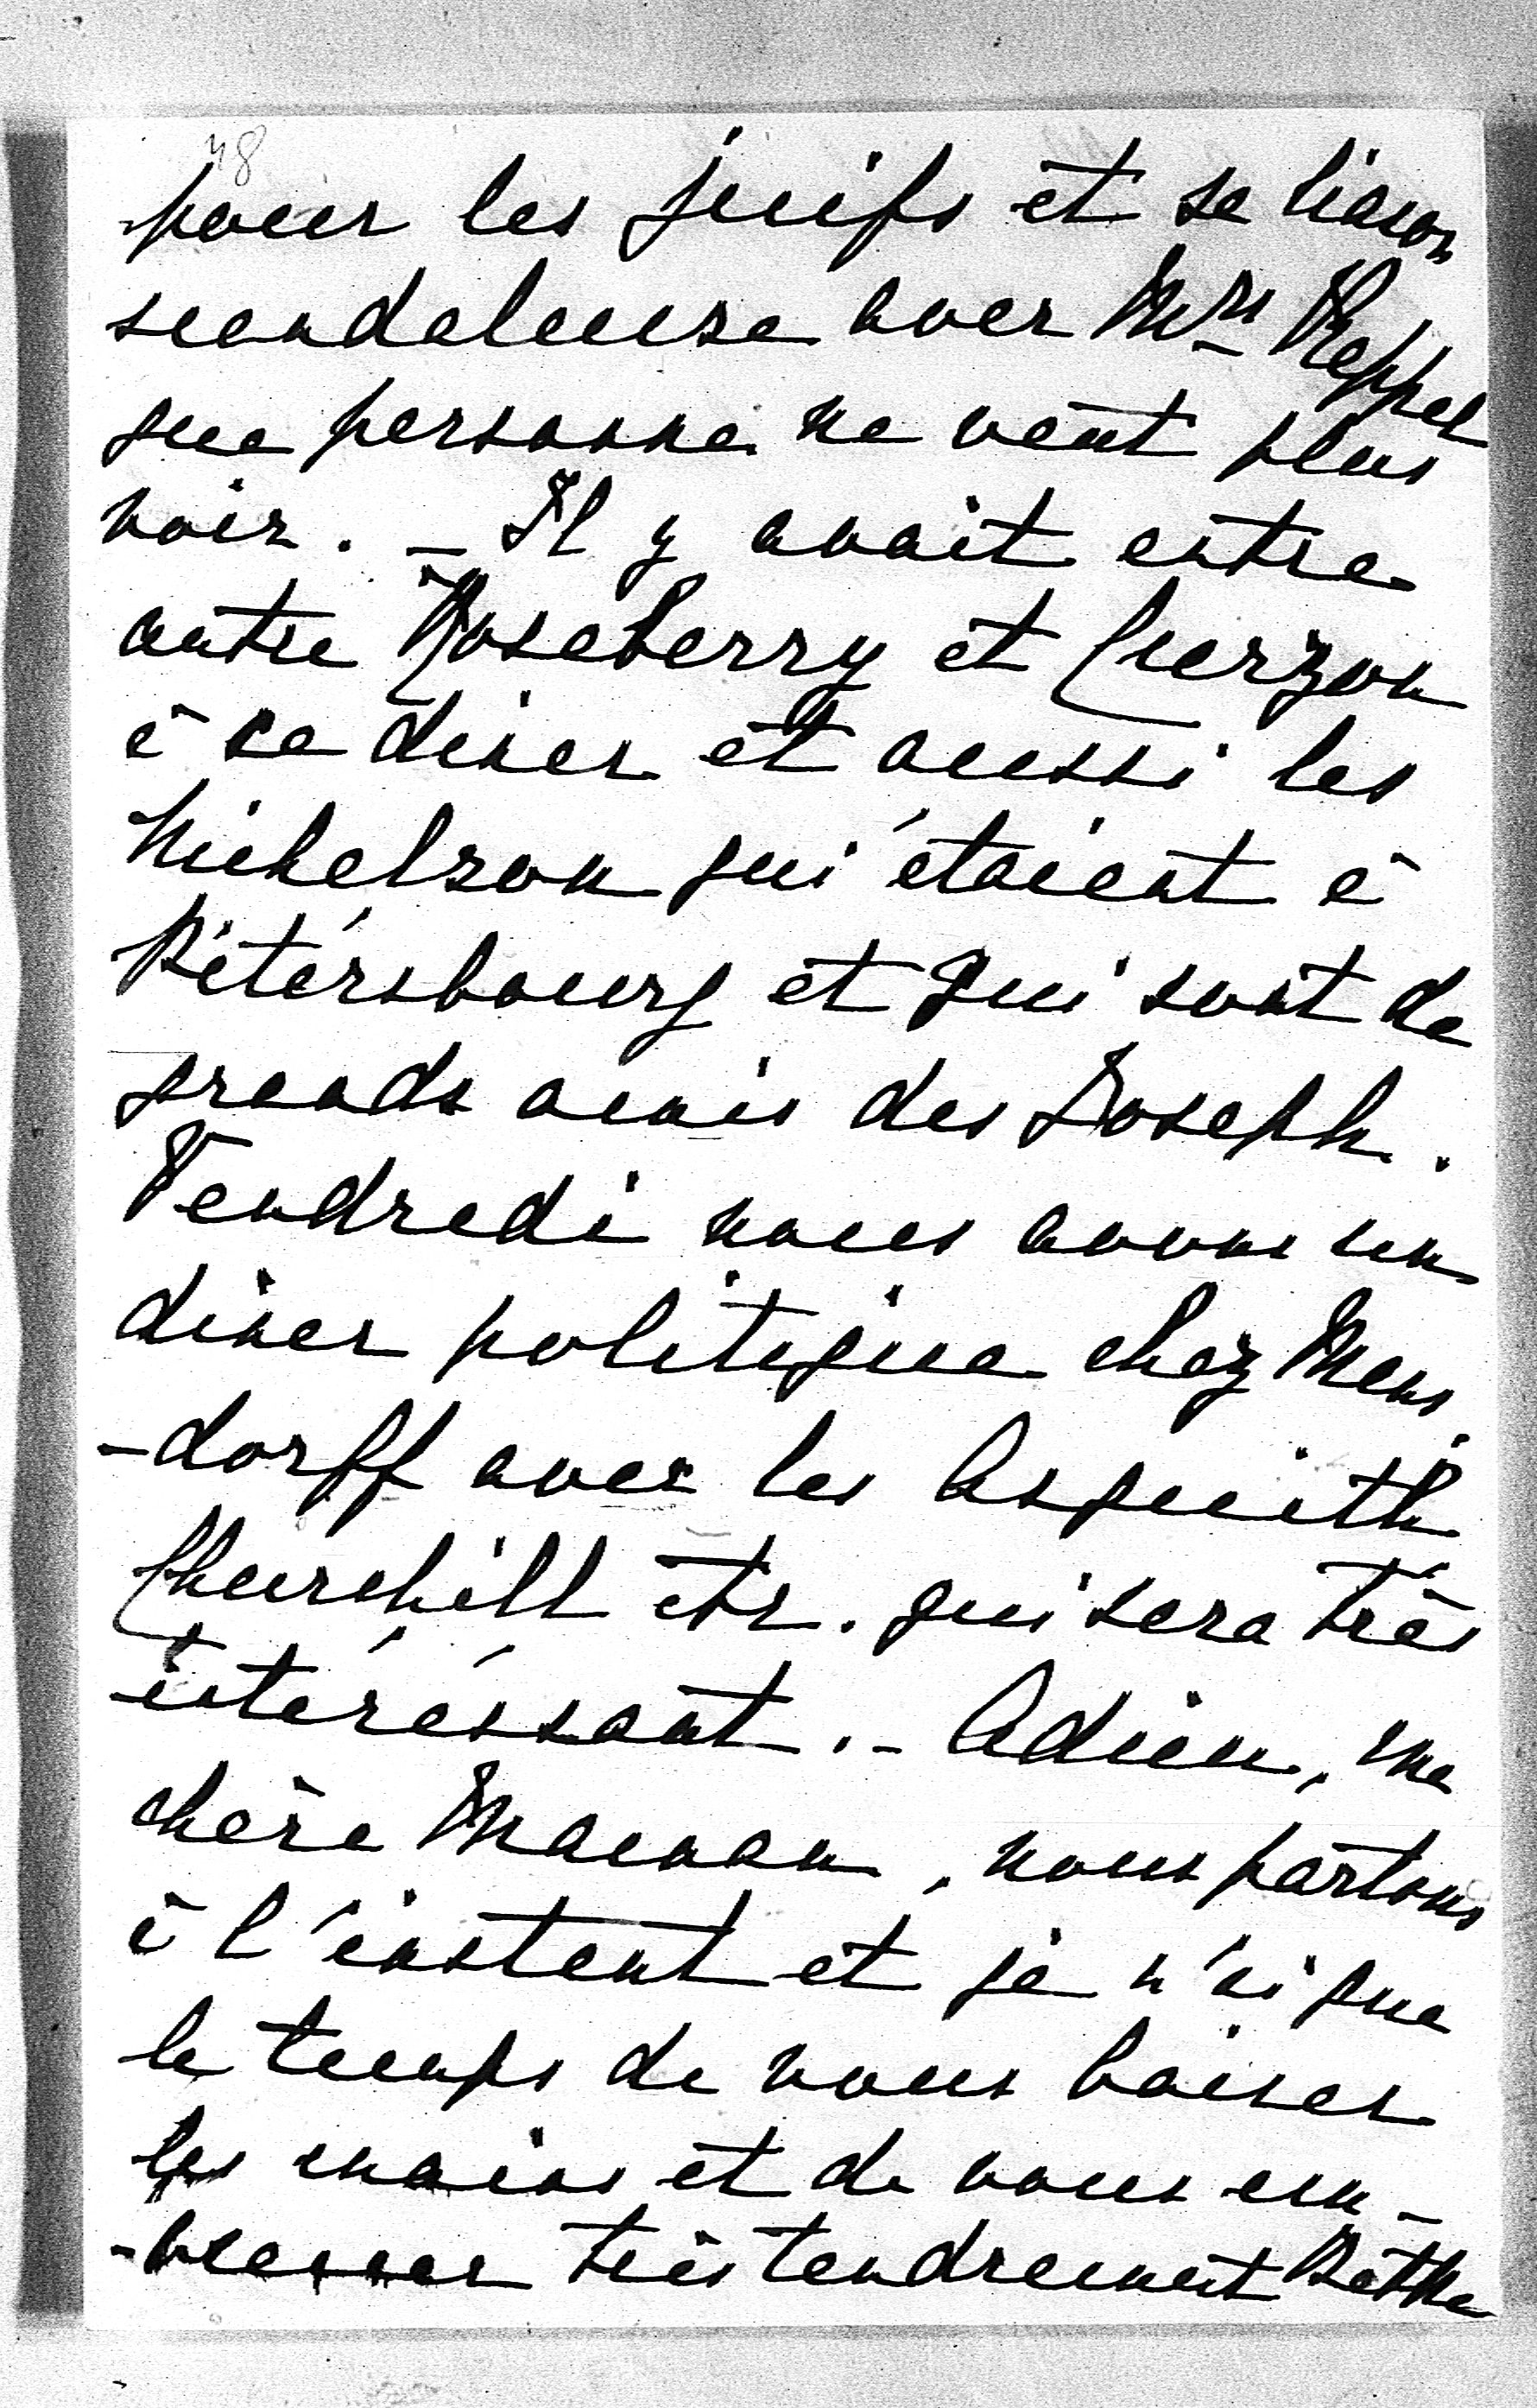 48
pour les juifs et sa liason
scandaleuse avec Mrs Keppel
que personne ne veut plus
voir. – Il y avait entre
autre Roseberry et Curzon
à ce diner et aussi les
Nickelson qui étaient à
Pétérsbourg et qui sont de
grands amis des Joseph.
Vendredi nous avons un
diner politique chez Mens
-dorff avec les Asquith
Churchill etc. qui sera très
intéréssant. – Adieu, ma
chère Maman, nous partons
à l'instant et je n'ai que
le temps de vous baiser
les mains et de vous em-
-brasser très tendrement